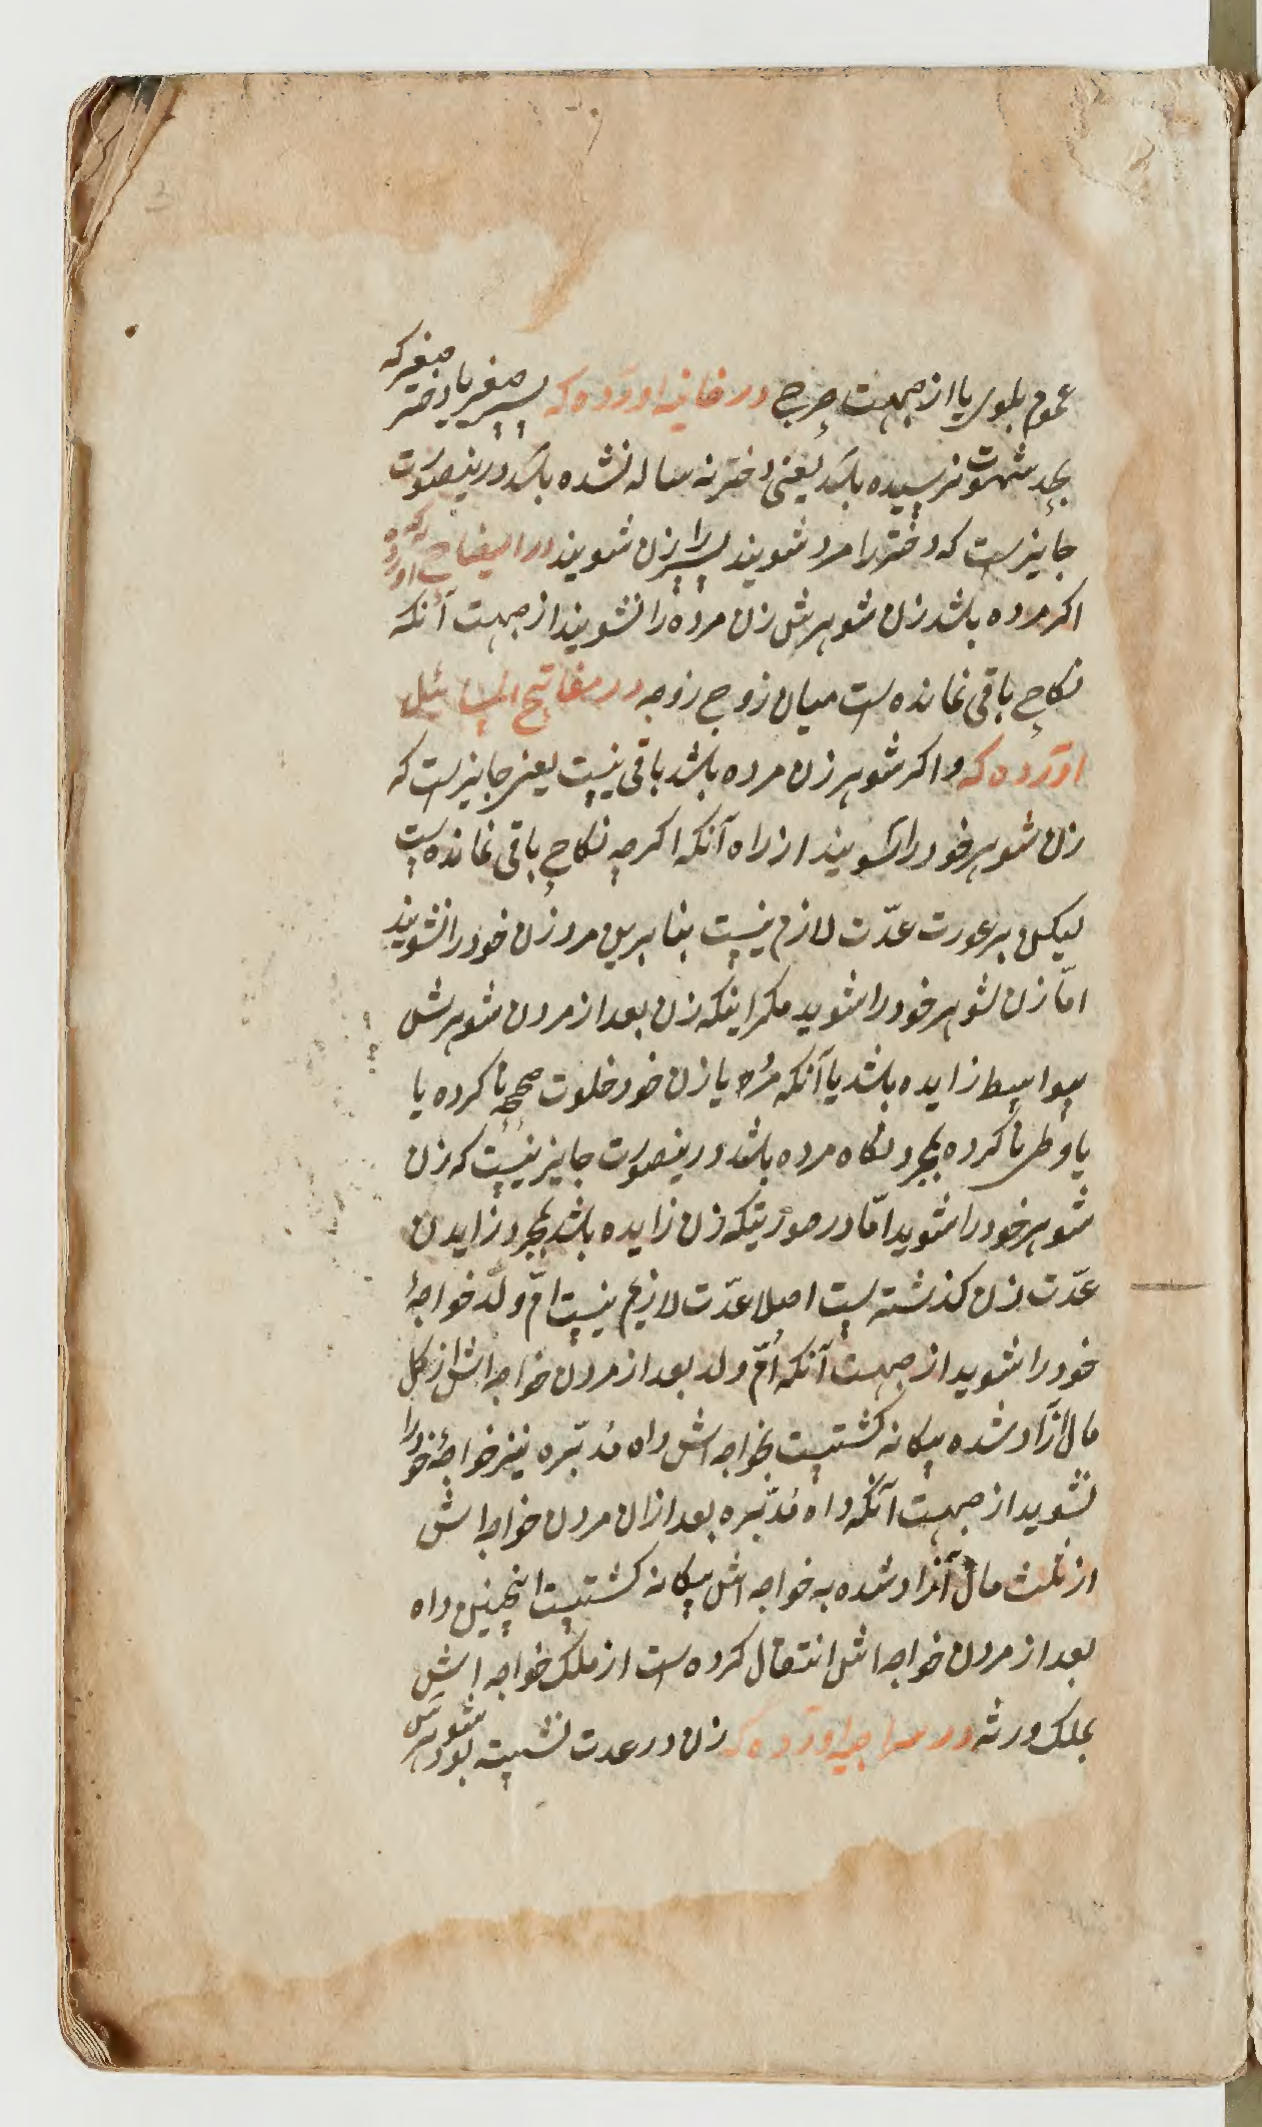 عموم بلوی یا از جهت حرج در خانیه آورده که پسر صغیر یا دختر صغیر که
بحد شهوت نرسیده باشد یعنی دختر نه ساله نشده باشد درینصورت
جایزست که دختر را مرد شویند پسر را زن شویند در ایضاح آورده که
اکر مرده باشد زن شوهرش زن مرده را نشویند از جهت آنکه
نکاح باقی نمانده است میان زوج زوجه در مفاتیح المسائیل
آورده که و اکر شوهر زن مرده باشد باقی نیست یعنی جایزست که
زن شوهر خود را بشویند از راه آنکه اکرچه نکاح باقی نمانده است
لیکن بر عورت عدّت لازم نیست بنابرین مرد زن خود را نشویند
امّا زن شوهر خود را شوید مکر اینکه زن بعد از مردن شوهرش
بیواسط زایده باشد یا آنکه مرد یا زن خود خلوت صحیحه نا کرده یا
یا وطی نا کرده بمجرد نکاه مرده باشد درینصورت جایز نیست که زن
شوهر خود را شوید امّا در صورتیکه زن زایده باشد بمجرد زایدن
عدّت زن کذشته است اصلا عدّت لازم نیست امّ ولد خواجهٔ
خود را شوید از جهت آنکه اُمّ ولد بعد از مردن خواجه اش از کل
مال آزاد شده بیکانه کشتیست بخواجه اش داه مُدبّره نیز خواجهٔ خود را
نشوید از جهت آنکه داه مُدبّره بعد ازان مردن خواجه اش
از ثلث مال آزاد شده به خواجه اش بیکانه کشتیست اینچنین داه
بعد از مردن خواجه اش انتقال کرده است از ملک خواجه اش
بملک ورثه در سراجیه آورده که زن در عدت نشسته بود شوهرش